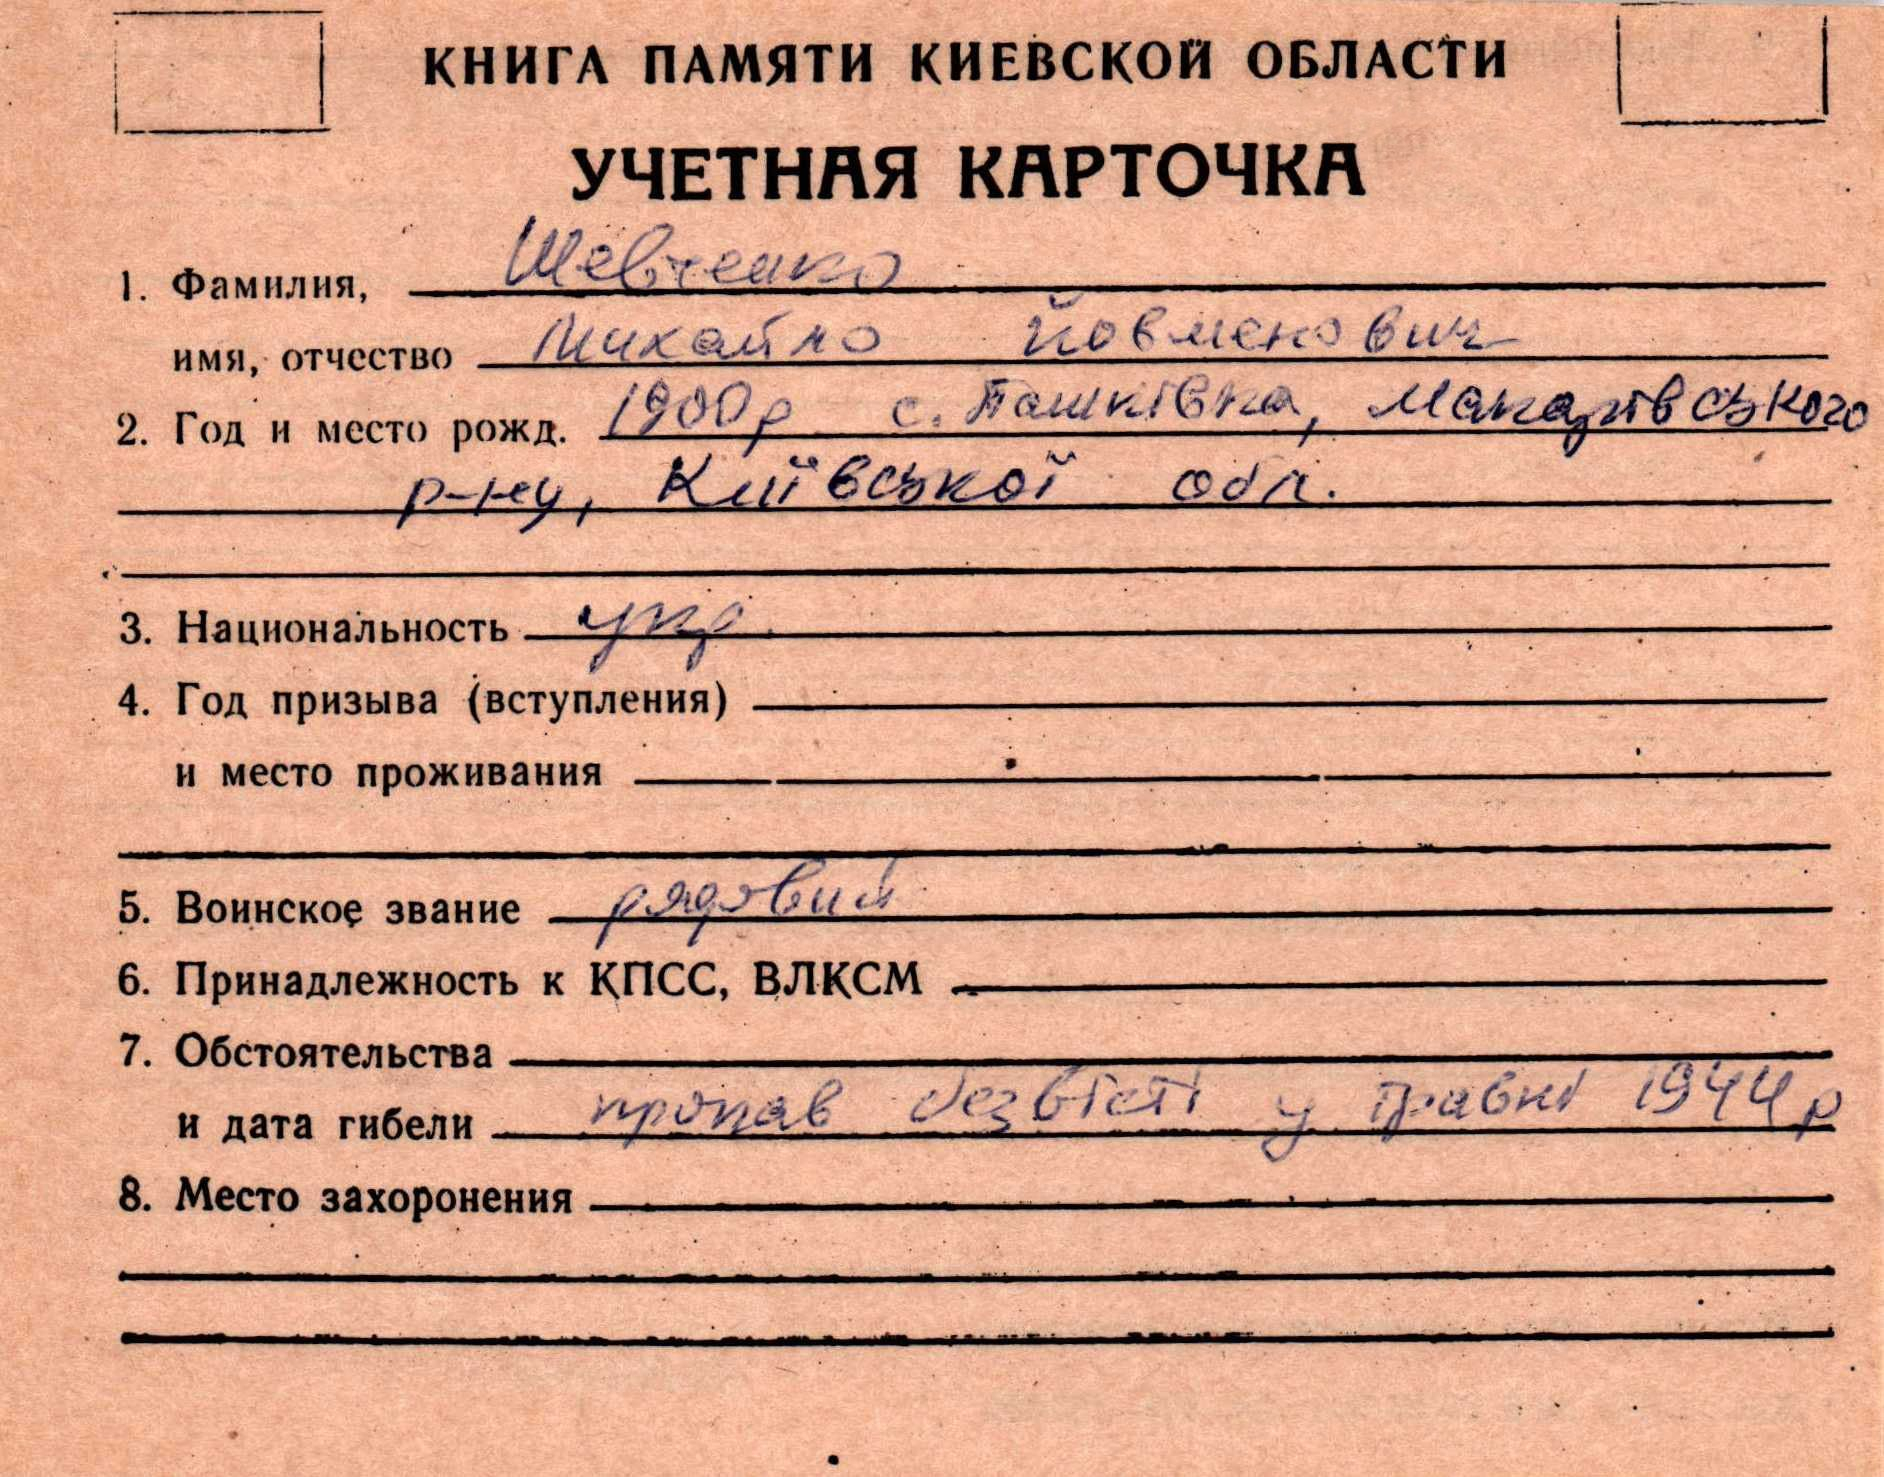 КНИГА ПАМЯТИ КИЕВСКОЙ ОБЛАСТИ
УЧЕТНАЯ КАРТОЧКА
1. Фамилия, Шевченко
имя, отчество Михайло Йовменович
2. Год и место рожд. 1900р с. Пашківка, Макарівського
р-ну, Київської обл.
3. Национальность укр.
4. Год призыва (вступления)
и место проживания
5. Воинское звание рядовий
6. Принадлежность к КПСС, ВЛКСМ
7. Обстоятельства
и дата гибели пропав безвісті у травні 1944р
8. Место захоронения